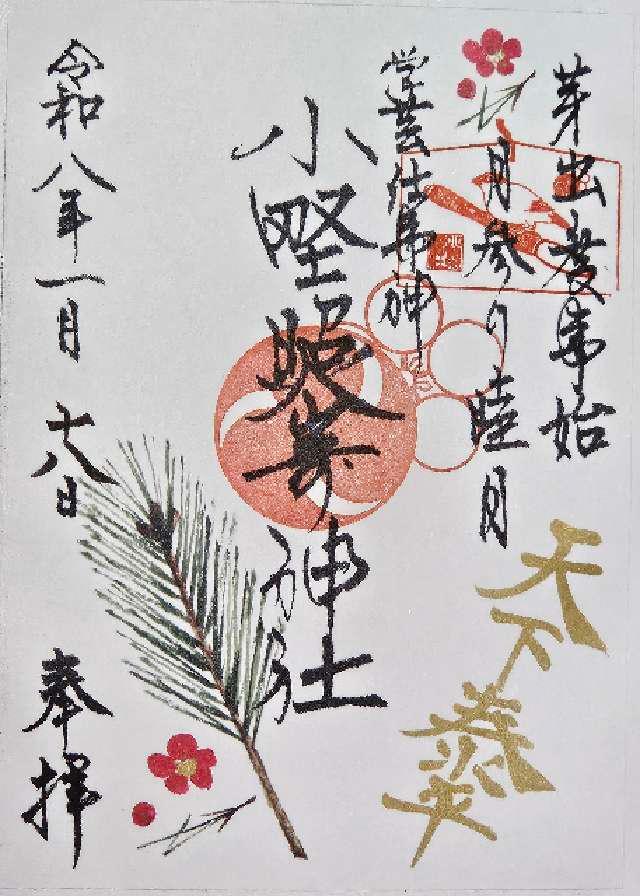 芽出度事始
月参り
睦月
学芸仕事神
天下泰平
小野照崎神社
令和八年一月十八日
奉拝